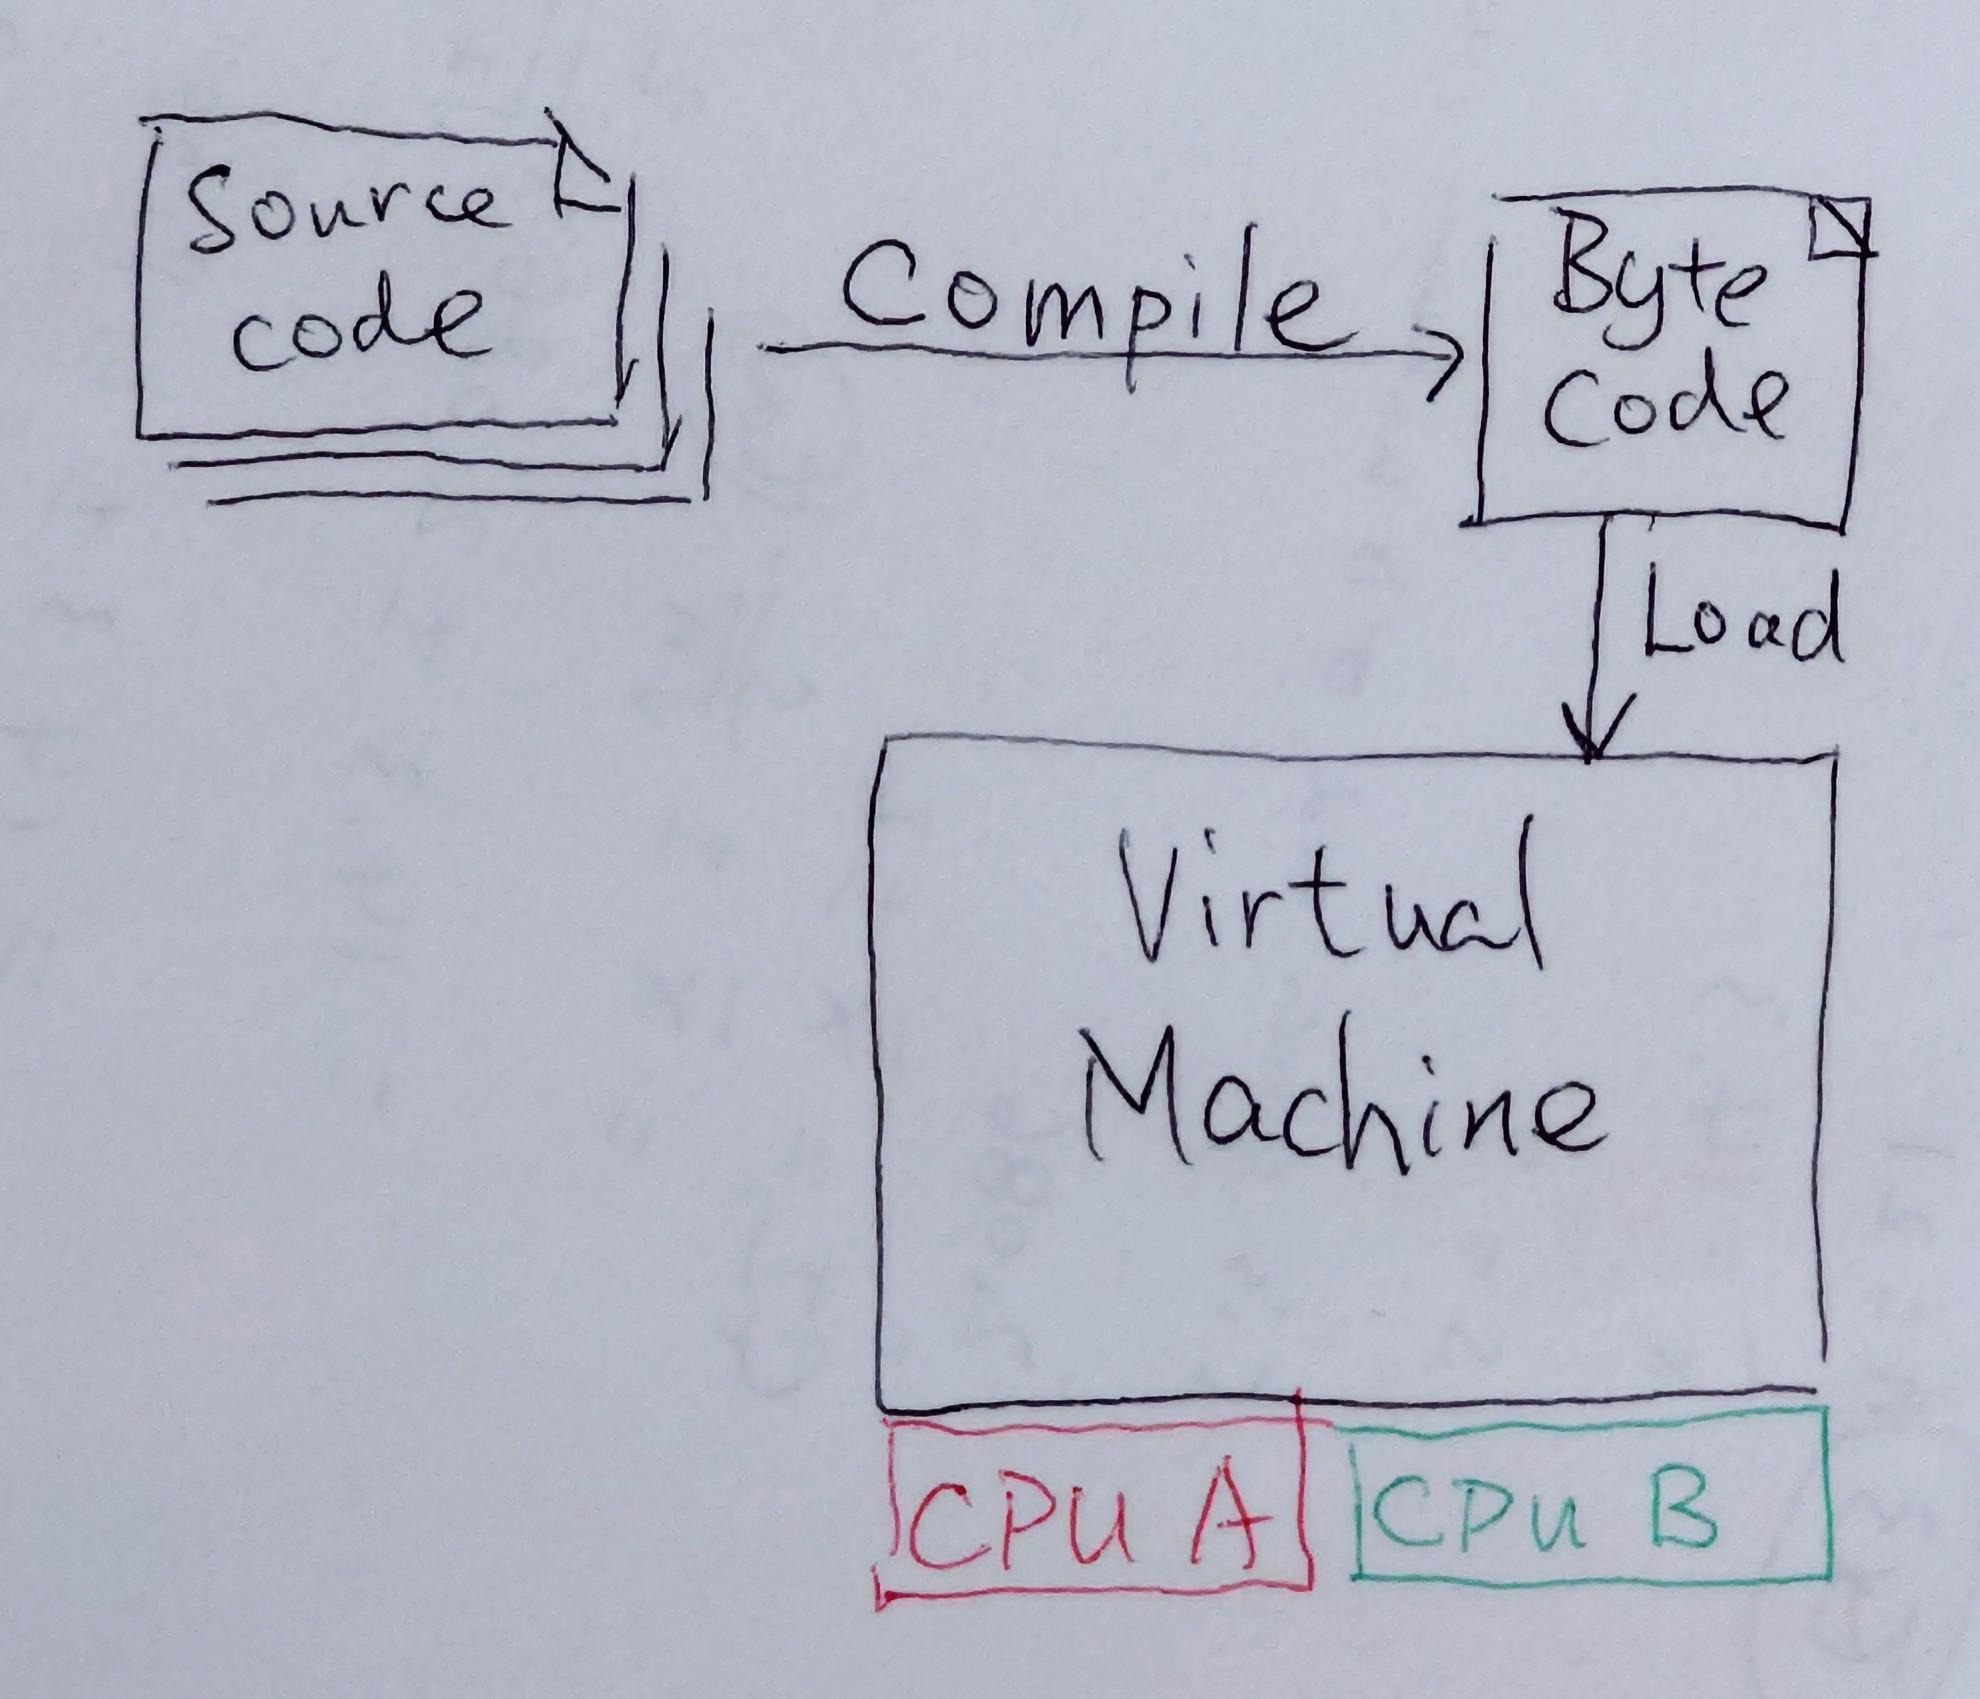 Source
code
Compile
Byte
Code
Load
Virtual
Machine
CPU A
CPU B